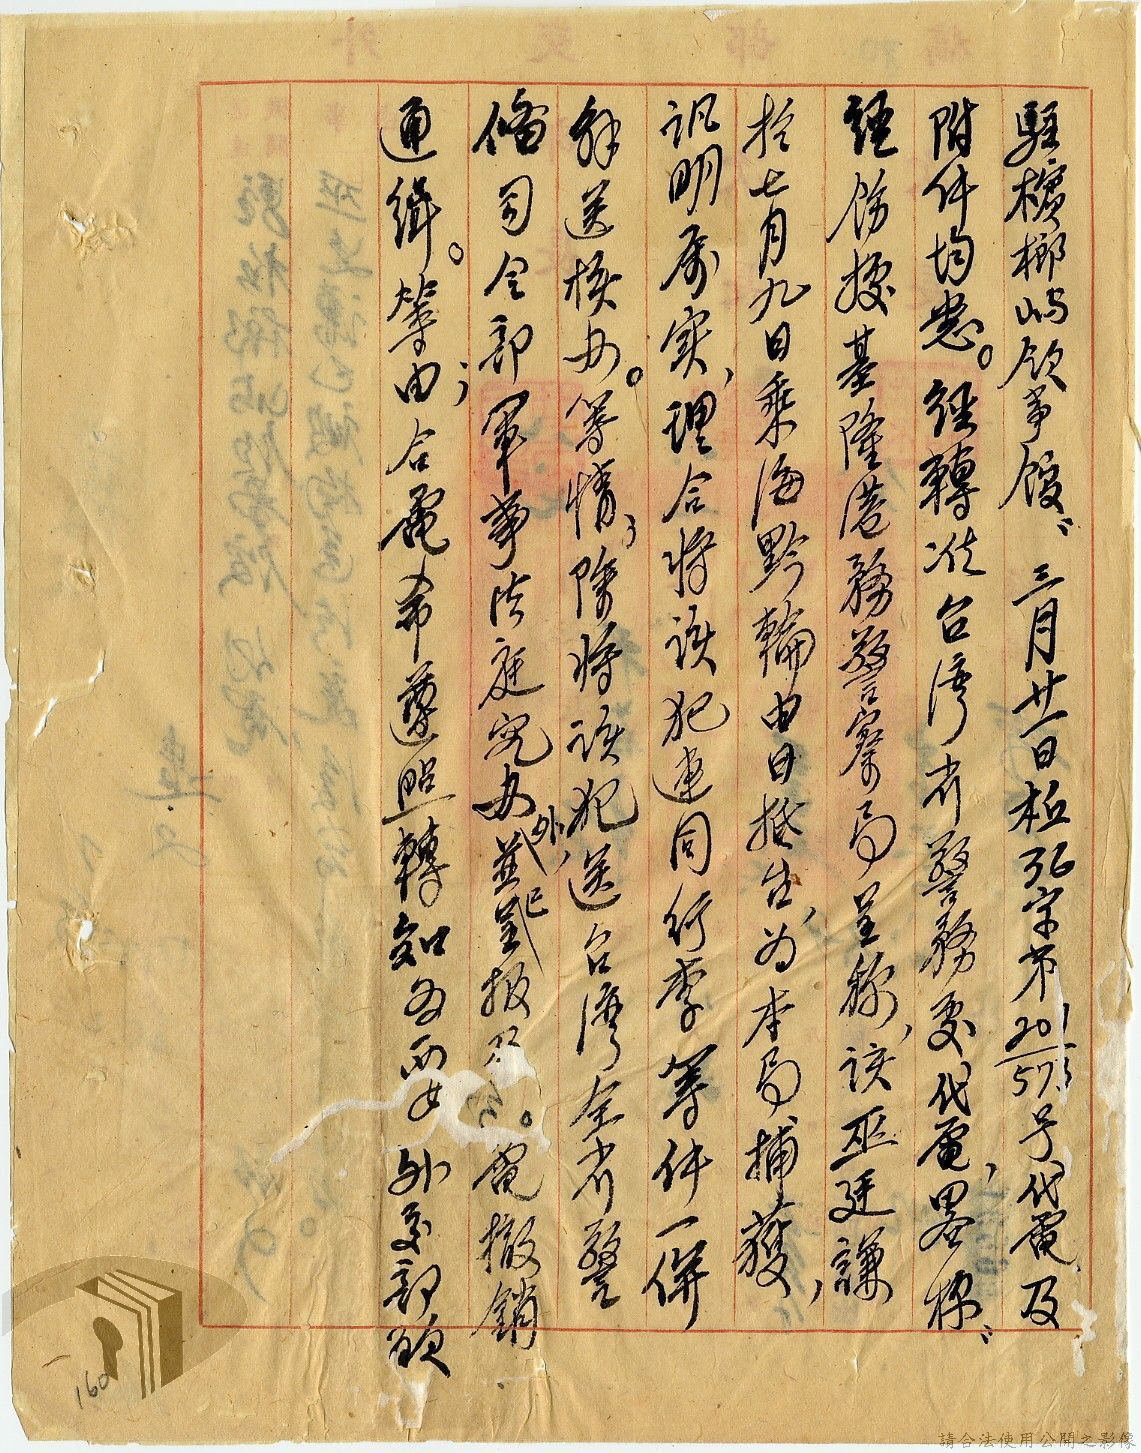 駐檳榔嶼領事館：三月廿一日檳37字第201/573号代電及
附件均悉。經轉准台湾省警務處代電，畧称：
經飭據基隆港務警察局呈称，該巫廷謙
於七月九日乘海黔輪由日抵台，为本局捕獲，
訊明屬实，理合将該犯連同行李等件一併
解送核办。等情，除将該犯送台湾全省警
備司令部軍事法庭究办外，並已呈报 電撤銷
通緝。等由；合電希遵照轉知 外交部欧
160
請合法使用公開之影像